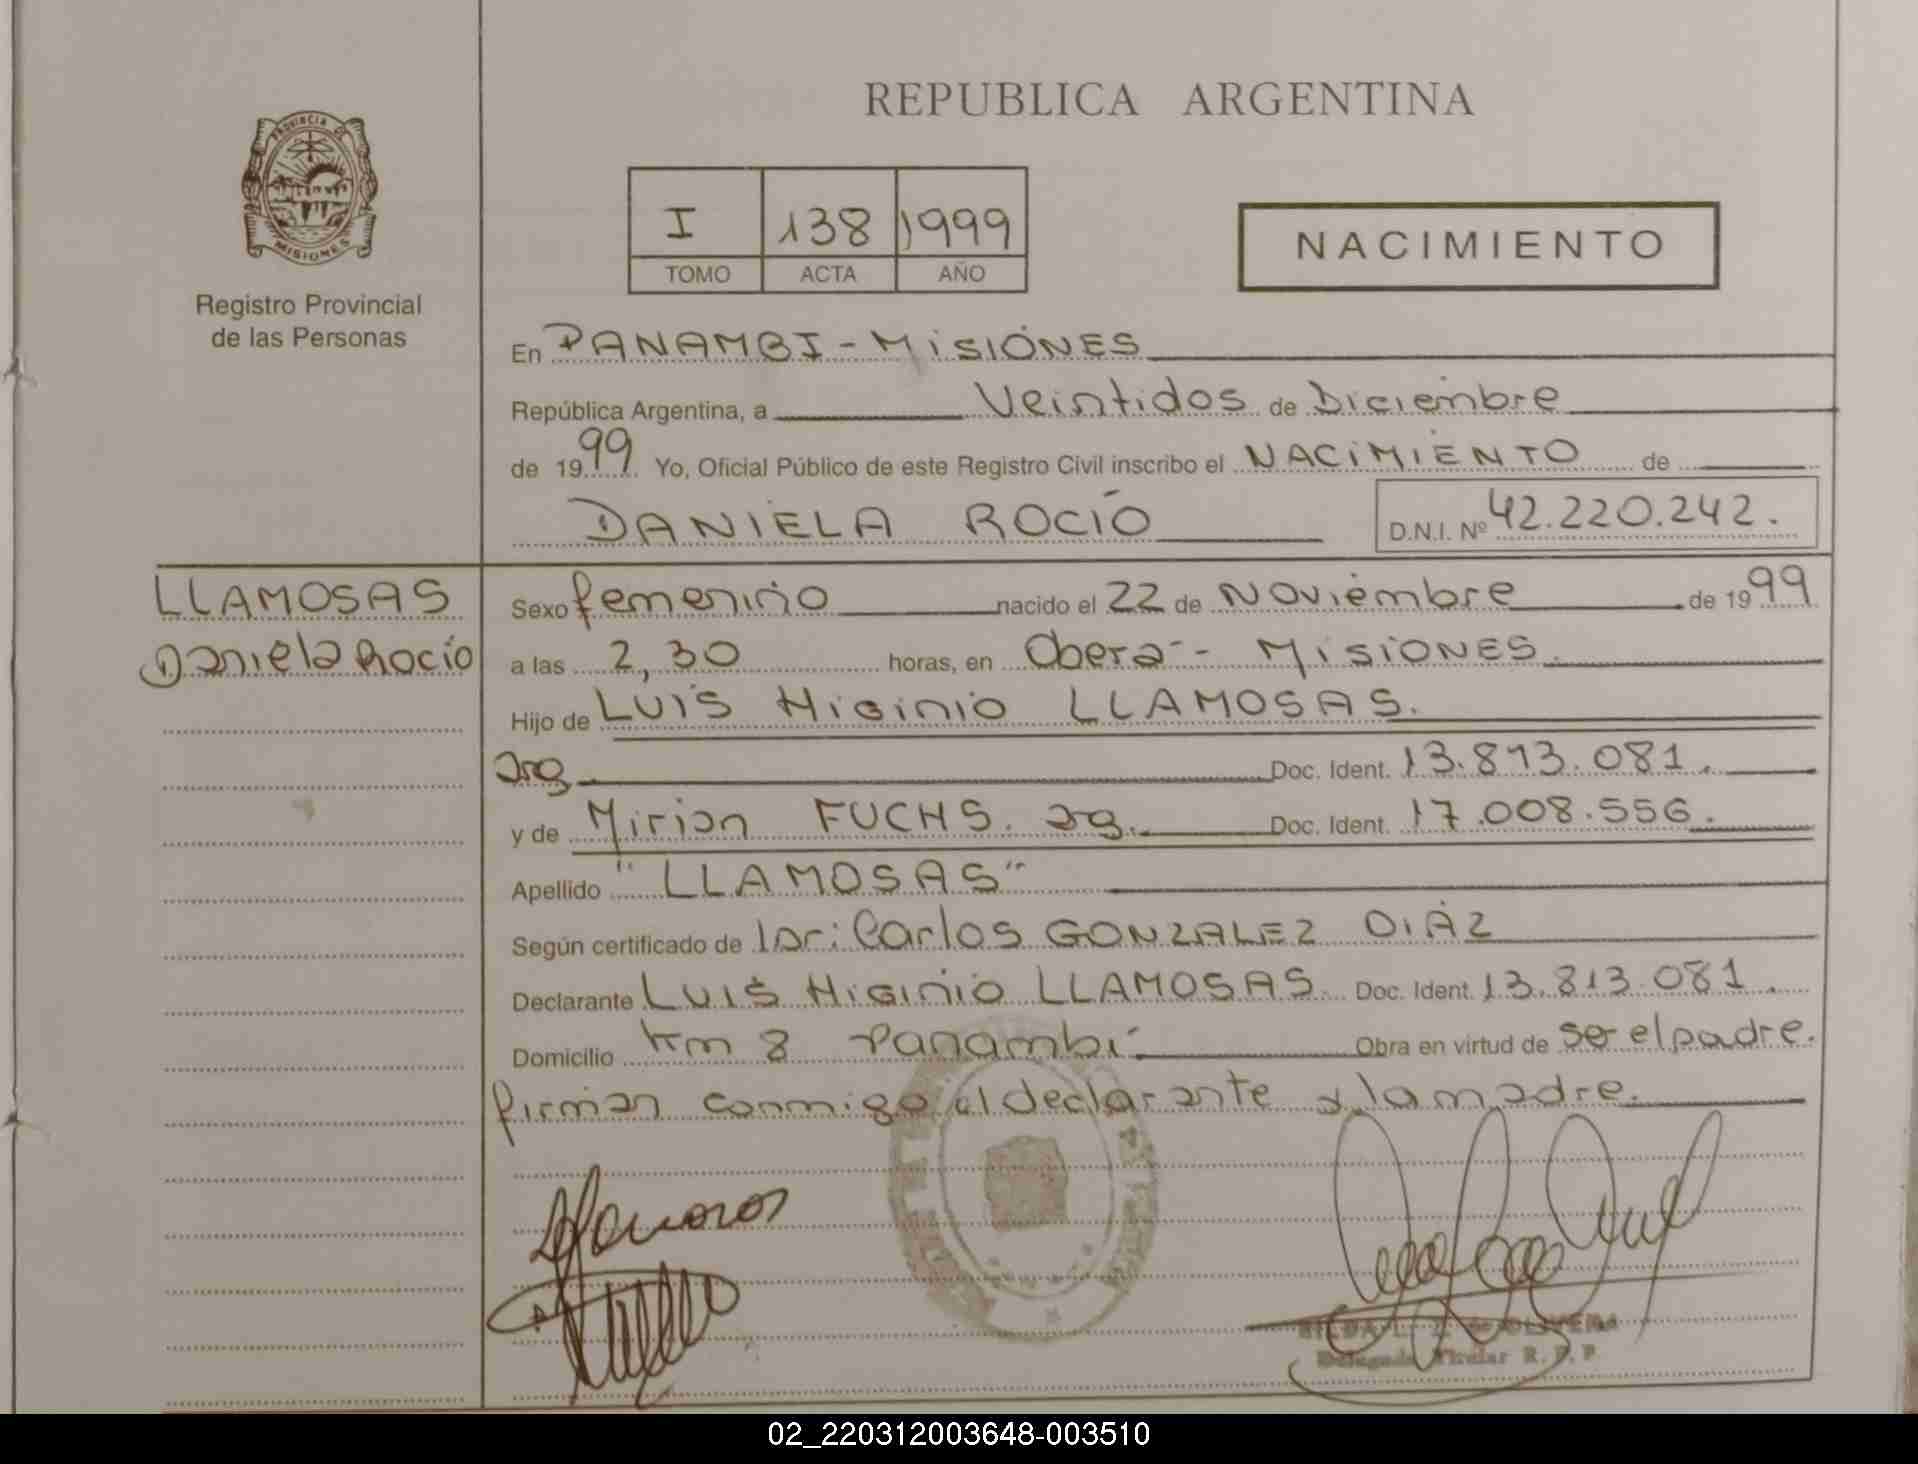 REPUBLICA ARGENTINA
PROVINCIA DE
MISIONES
Registro Provincial
de las Personas
I 138 1999
TOMO ACTA AÑO
NACIMIENTO
En PANAMBI - MISIONES
República Argentina, a Veintidos de Diciembre
de 1999 Yo, Oficial Público de este Registro Civil inscribo el NACIMIENTO de
DANIELA ROCÍO D.N.I. Nº 42.220.242.
LLAMOSAS
Daniela Rocío
Sexo femenino nacido el 22 de Noviembre de 1999
a las 2,30 horas, en Obera - MISIONES.
Hijo de LUIS HIGINIO LLAMOSAS.
arg Doc. Ident. 13.813.081.
y de Mirian FUCHS. arg. Doc. Ident. 17.008.556.
Apellido "LLAMOSAS"
Según certificado de Dr: Carlos GONZALEZ DIAZ
Declarante LUIS HIGINIO LLAMOSAS Doc. Ident. 13.813.081.
Domicilio Km 8 Panambi Obra en virtud de ser el padre.
firman conmigo el declarante y la madre.
de OLIVERA
Delegada Titular R. P. P.
02_220312003648-003510